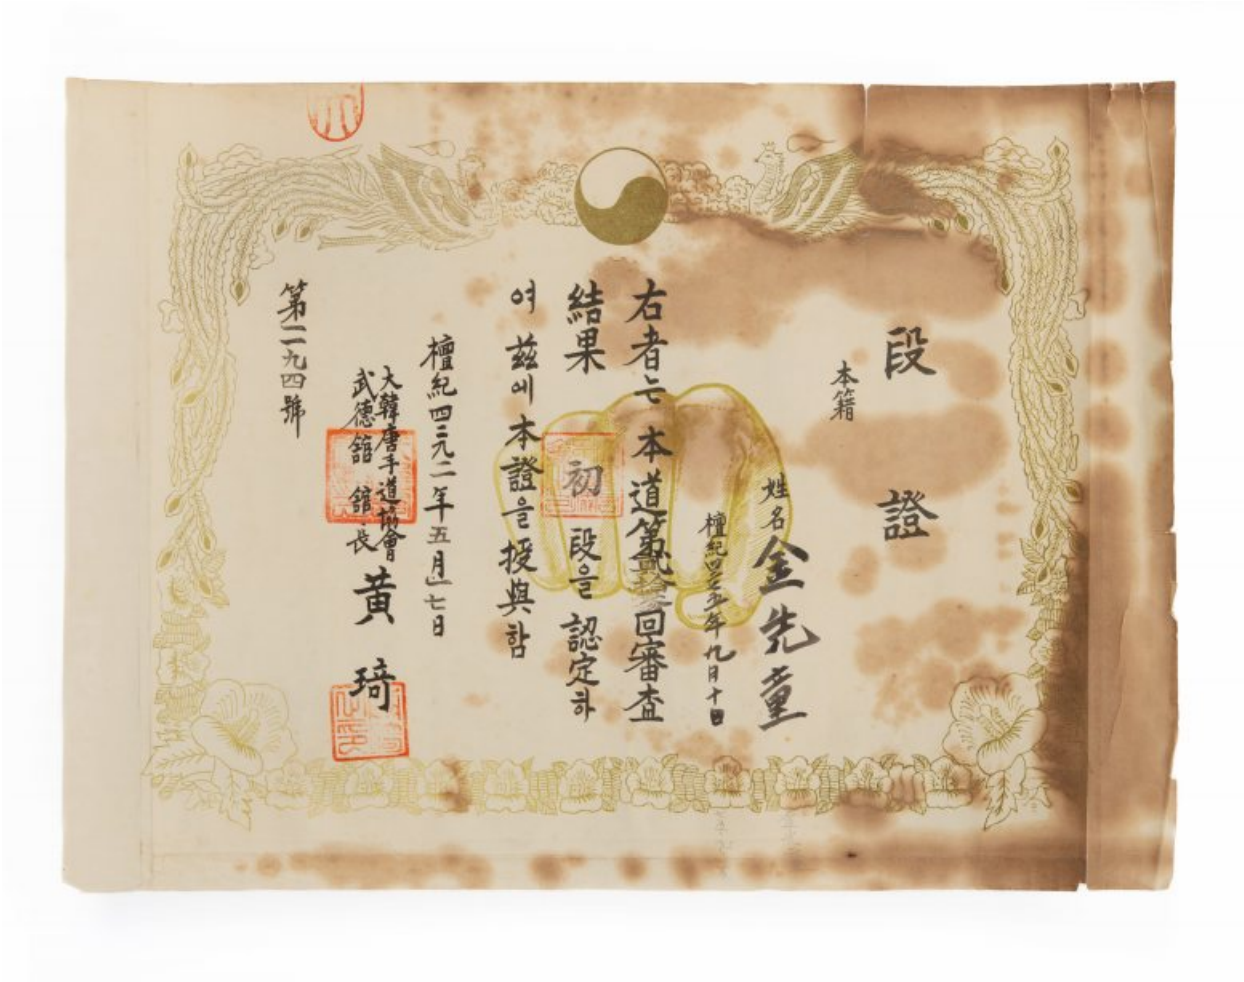 段 證
本籍
姓名 金先童
檀紀 年九月十日
右者는 本道第貳拾 回審査
結果 初 段을 認定하
여 玆에 本證을 授與함
檀紀四二九二年五月 七日
大韓唐手道協會
武德館 館長 黃 琦
第二九四號